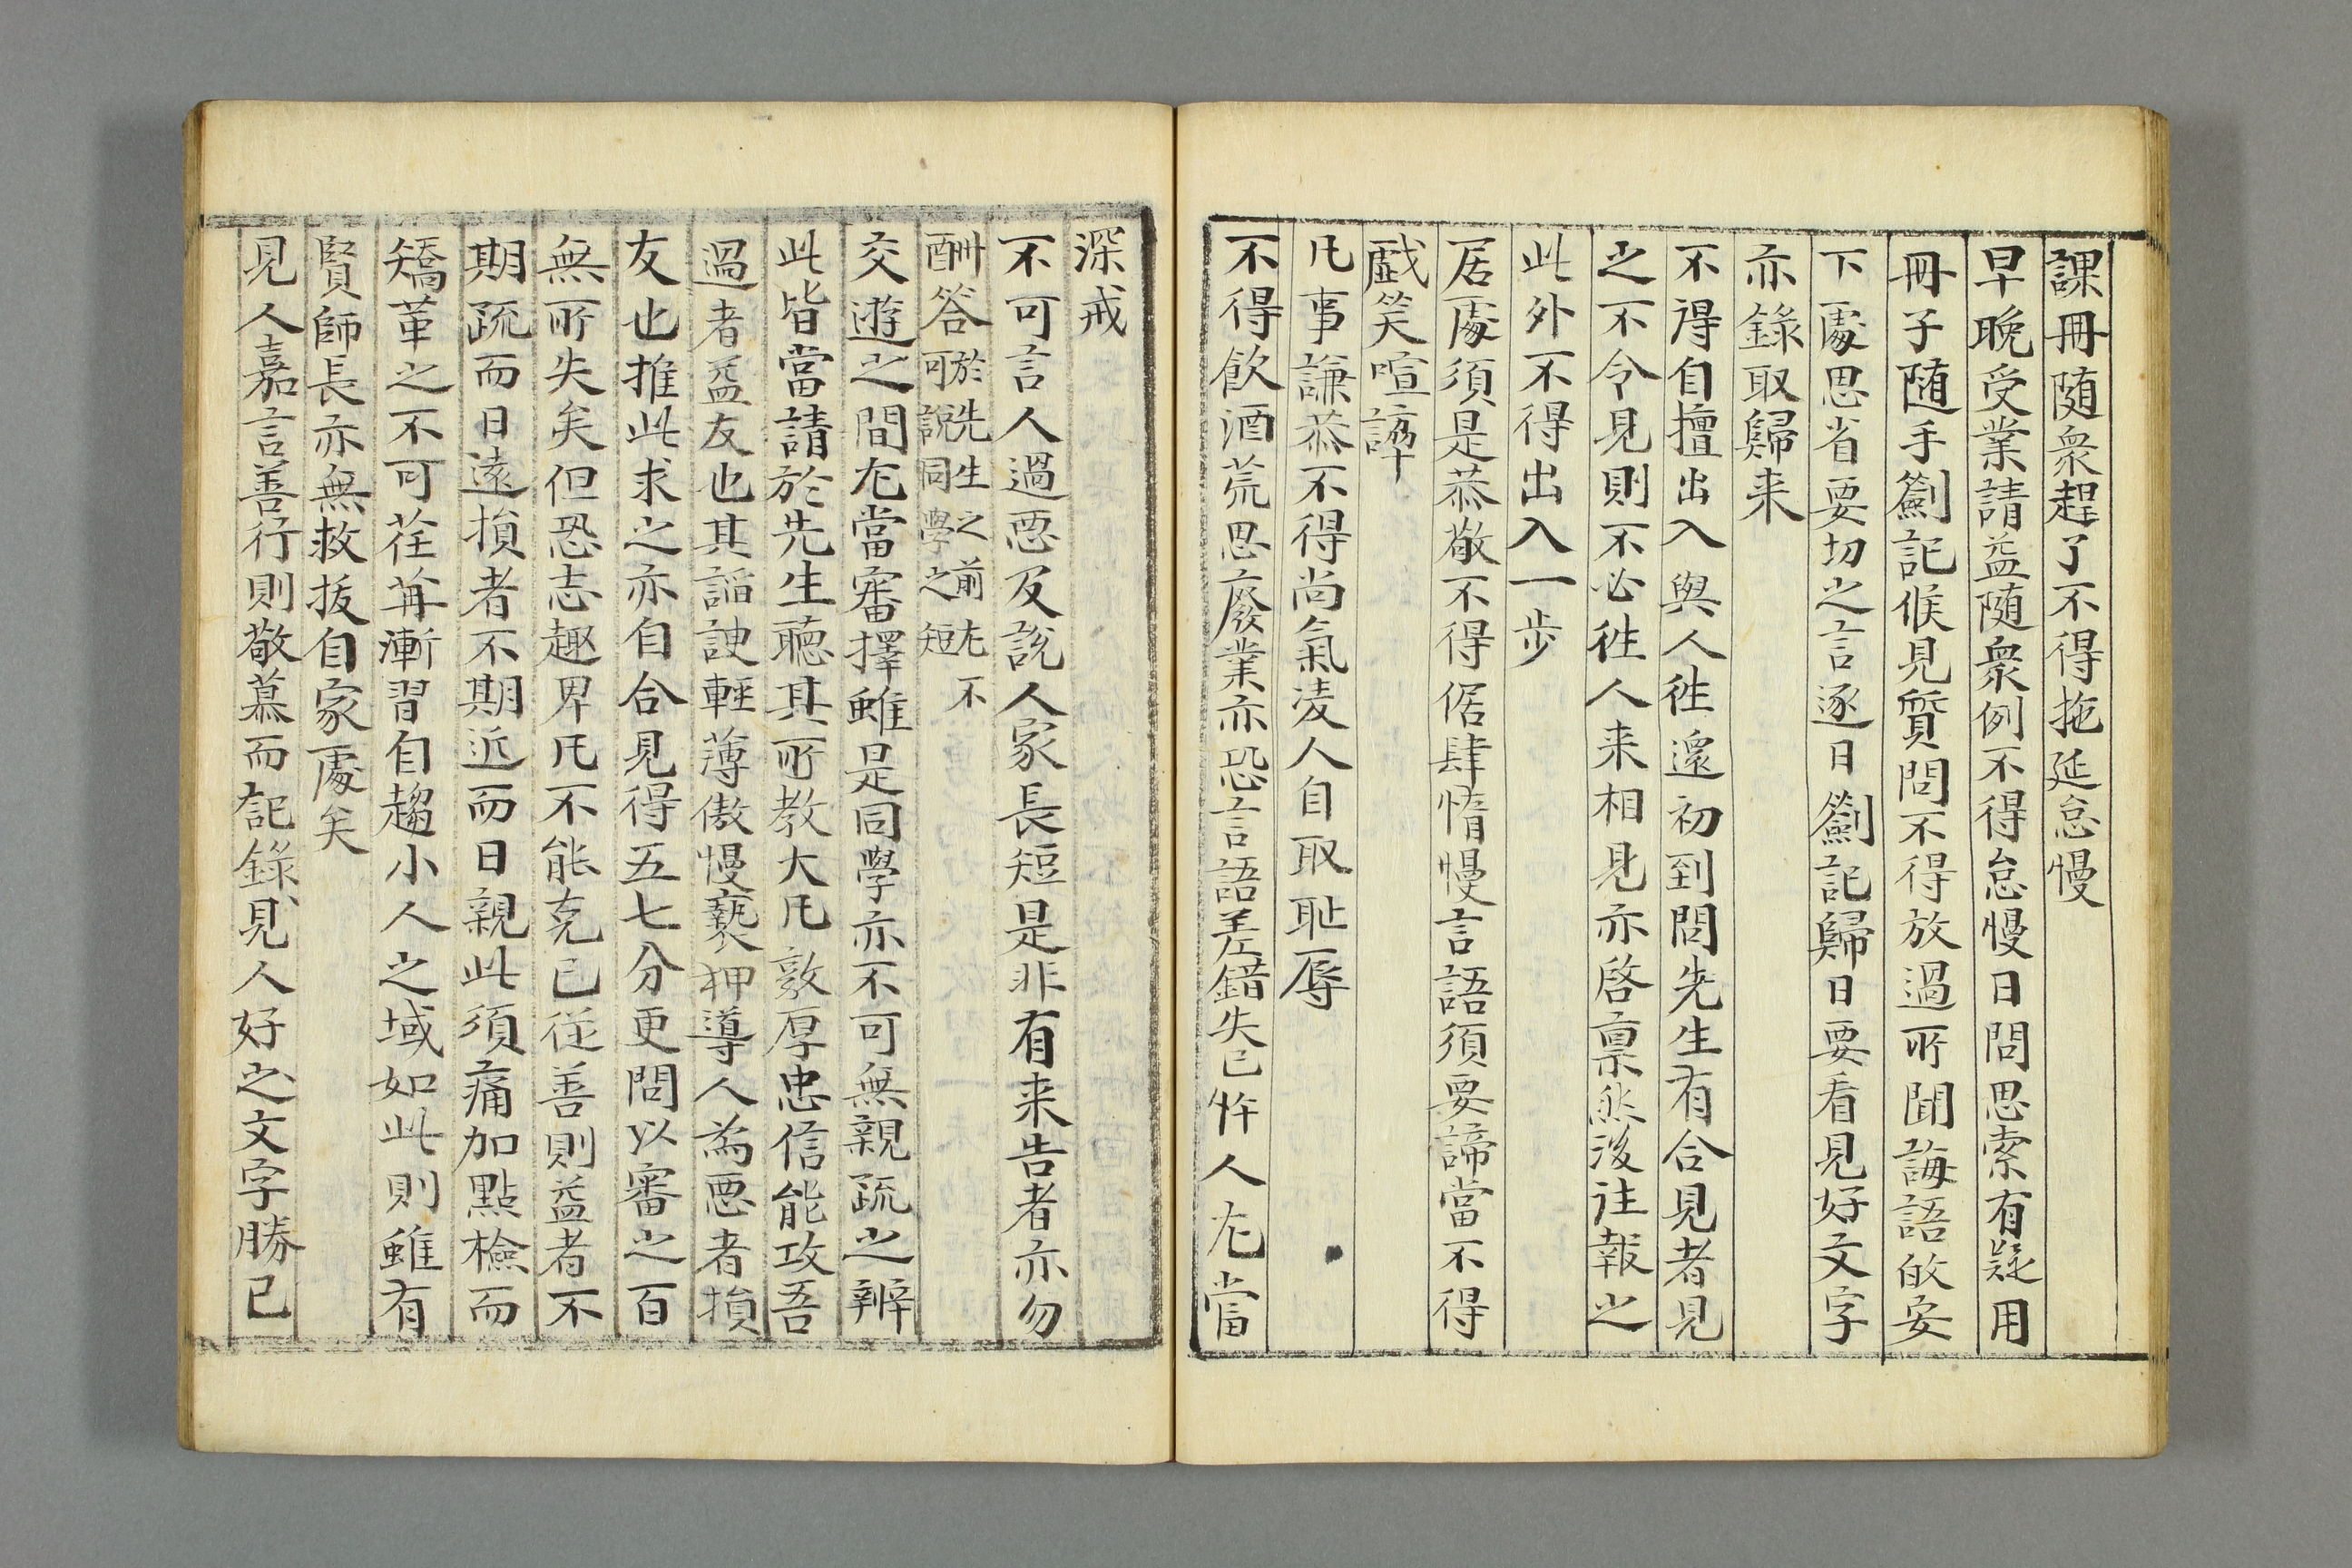 課冊随衆趕了不得拖延怠慢
早晚受業請益随衆例不得怠慢日間思索有疑用
冊子随手劄記候見質問不得放過所聞誨語歸安
下處思省要切之言逐日劄記歸日要看見好文字
亦錄取歸来
不得自擅出入與人徃還初到問先生有合見者見
之不令見則不必徃人来相見亦啓禀然後徃報之
此外不得出入一步
居處須是恭敬不得倨肆惰慢言語須要諦當不得
戱笑喧譁
凡事謙恭不得尚氣凌人自取耻辱
不得飲酒荒思廢業亦恐言語差錯失己忤人尤當
深戒
不可言人過惡及說人家長短是非有来告者亦勿
酬答於先生之前尤不可說同學之短
交遊之間尤當審擇雖是同學亦不可無親疏之辨
此皆當請於先生聽其所教大凡敦厚忠信能攻吾
過者益友也其謟諛輕薄傲慢褻狎導人為惡者損
友也推此求之亦自合見得五七分更問以審之百
無所失矣但恐志趣卑凡不能克己従善則益者不
期疏而日遠損者不期近而日親此須痛加點檢而
矯革之不可荏苒漸習自趨小人之域如此則雖有
賢師長亦無救拔自家處矣
見人嘉言善行則敬慕而記錄見人好之文字勝己